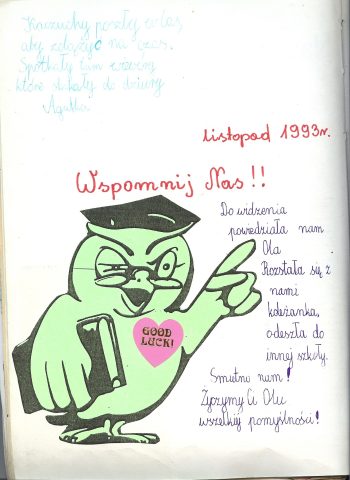 poszły w las,
aby zdążyć na czas.
Spotkały tam
które do dziury
listopad 1993r.
Wspomnij Nas!!
Do widzenia
powiedziała nam
Ola
Rozstała się z
nami
koleżanka,
odeszła do
innej szkoły.
Smutno nam!
Życzymy Ci Olu
wszelkiej pomyślności!
GOOD
LUCK!